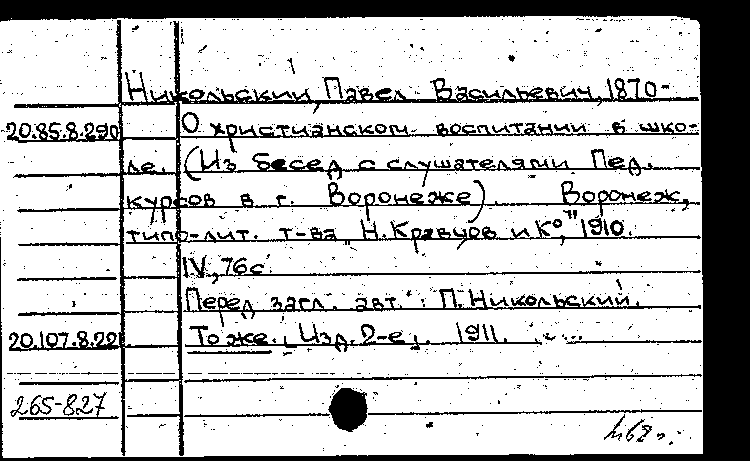 Никольский, Павел Васильевич, 1870-
20.85.8.290 О христианском воспитании в шко-
ле. (Из бесед с слушателями Пед.
курсов в г. Воронеже). Воронеж,
типо-лит. т-ва „Н. Кравцов и К°," 1910.
IV, 76с.
Перед загл. авт.: П. Никольский.
20.107.8.22 То же. Изд. 2-е. 1911.
265-827